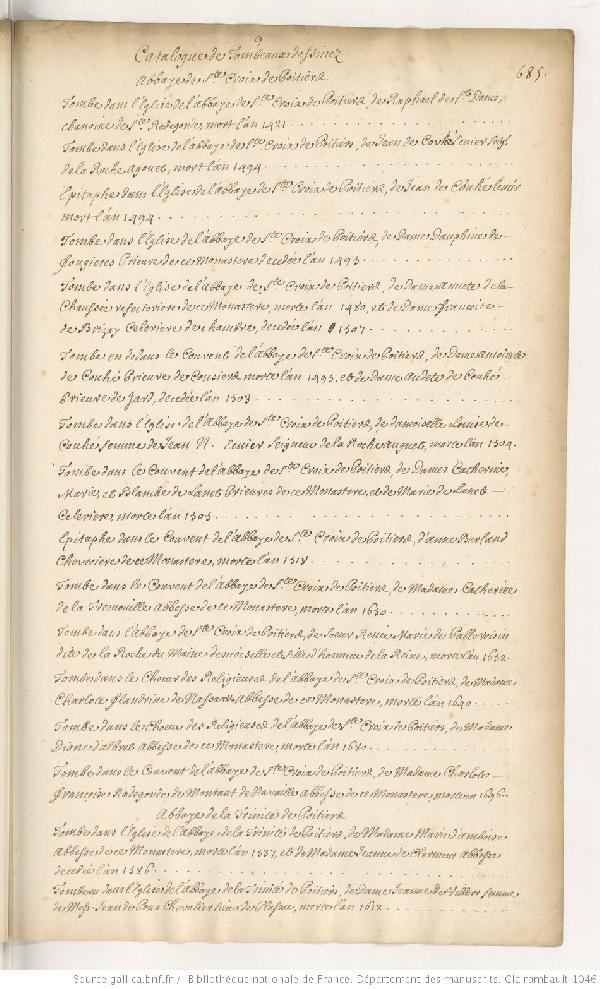 9
Catalogue de Tombeaux dessinez
685.
Abbaye de Ste Croix de Poitiers
Tombe dans l'Eglise de l'abbaye de Ste Croix de Poitiers, de Raphael de St Denis,
chanoine de Ste Radegonde, mort l'an 1421
Tombe dans l'Eglise de l'abbaye de Ste Croix de Poitiers, de Jean de Couhé
de la Roche Aguet, mort l'an 1494
Epitaphe dans l'Eglise de l'abbaye de Ste Croix de Poitiers, de Jean de Couhé
mort l'an 1494
Tombe dans l'Eglise de l'abbaye de Ste Croix de Poitiers, de Dame Dauphine de
fougieres Prieure de ce Monastere decedée l'an 1493
Tombe dans l'Eglise de l'abbaye de Ste Croix de Poitiers, de Dame annete de la
Chaussée refectoriere de ce Monastere, morte l'an 1480, et de Dame françoise
de Brizay Celeriere de chambre, decedée l'an 1507
Tombe en dedans le Couvent de l'abbaye de Ste Croix de Poitiers, de Dame antoinete
de Couhé Prieure de morte l'an 1493, et de Dame de Couhé
Prieure de Jard, decedée l'an 1508
Tombe dans l'Eglise de l'Abbaye de Ste Croix de Poitiers, de damoiselle Louise de
Couhé femme de Jean N. Seigneur de la Roche auguet, morte l'an 1504
Tombe dans le Couvent de l'abbaye de Ste Croix de Poitiers, de Dames Catherine,
Marie, et Blanche de Lanet Prieures de ce Monastere, et de Marie de Lanet
Celeriere, morte l'an 1505
Epitaphe dans le Couvent de l'Abbaye de Ste Croix de Poitiers, d'anne Berland
Cheveciere de ce Monastere, morte l'an 1518
Tombe dans le Couvent de l'abbaye de Ste Croix de Poitiers, de Madame Catherine
de la Tremouille abbesse de ce Monastere, morte l'an 1650
Tombe dans l'abbaye de Ste Croix de Poitiers, de Soeur Renée Marie de Vallervoisin
dite de la Roche du Maine demoiselle et fille d'honneur de la Reine, morte l'an 1632
Tombe dans le Choeur des Religieuses de l'abbaye de Ste Croix de Poitiers, de Madame
Charlote flandrine de Nassau Abbesse de ce Monastere, morte l'an 1640
Tombe dans le Choeur des Religieuses de l'abbaye de Ste Croix de Poitiers, de Madame
Diane d'albret abbesse de ce Monastere, morte l'an 1680
Tombe dans le Couvent de l'abbaye de Ste Croix de Poitiers, de Madame Charlote
françoise Radegonde de Montaut de Navaille abbesse de ce Monastere, morte en 1696
Abbaye de la Trinité de Poitiers
Tombe dans l'Eglise de l'abbaye de la Trinité de Poitiers, de Madame Marie d'amboise
abbesse de ce Monastere, morte l'an 1537, et de Madame Jeanne de Clermont abbesse
decedée l'an 1586
Tombeau dans l'Eglise de l'abbaye de la Trinité de Poitiers, de Dame Jeanne de Villiers femme
de Mess. Jean de Chevalier de morte l'an 1612
Source gallica.bnf.fr / Bibliothèque nationale de France. Département des manuscrits. Clairambault 1046